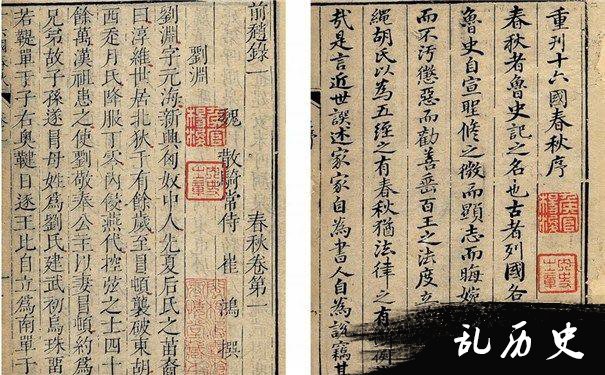 重刊十六國春秋序
春秋者魯史記之名也古者列國各
魯史自宣聖脩之微而顯志而晦婉
而不汚懲惡而勸善垂百王之法度立
繩胡氏以為五經之有春秋猶法律之有
哉是言近世譔述家家自為書人自為說竊其
春秋卷第一
前趙錄一
魏散騎常侍崔鴻撰
劉淵
劉淵字元海新興匈奴中人先夏后氏之苗裔
曰淳維世居北狄千有餘歲至冒頓襲破東胡
西走月氏降服丁零內侵燕代控弦之士四十
餘萬漢祖患之使劉敬奉公主以妻冒頓約為
兄弟故子孫遂冒母姓為劉氏建武初烏珠留
若鞮單于子右奧鞬日逐王比自立為南單于
乱历史